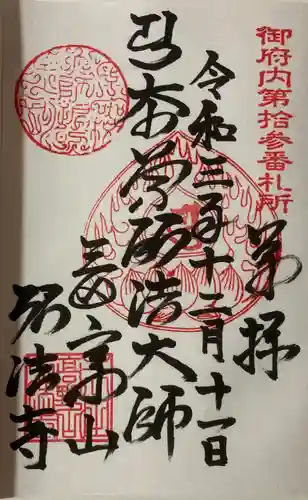 御府内第拾参番札所
奉拝
令和三年十二月十一日
本尊弘法大師
山
弘法寺